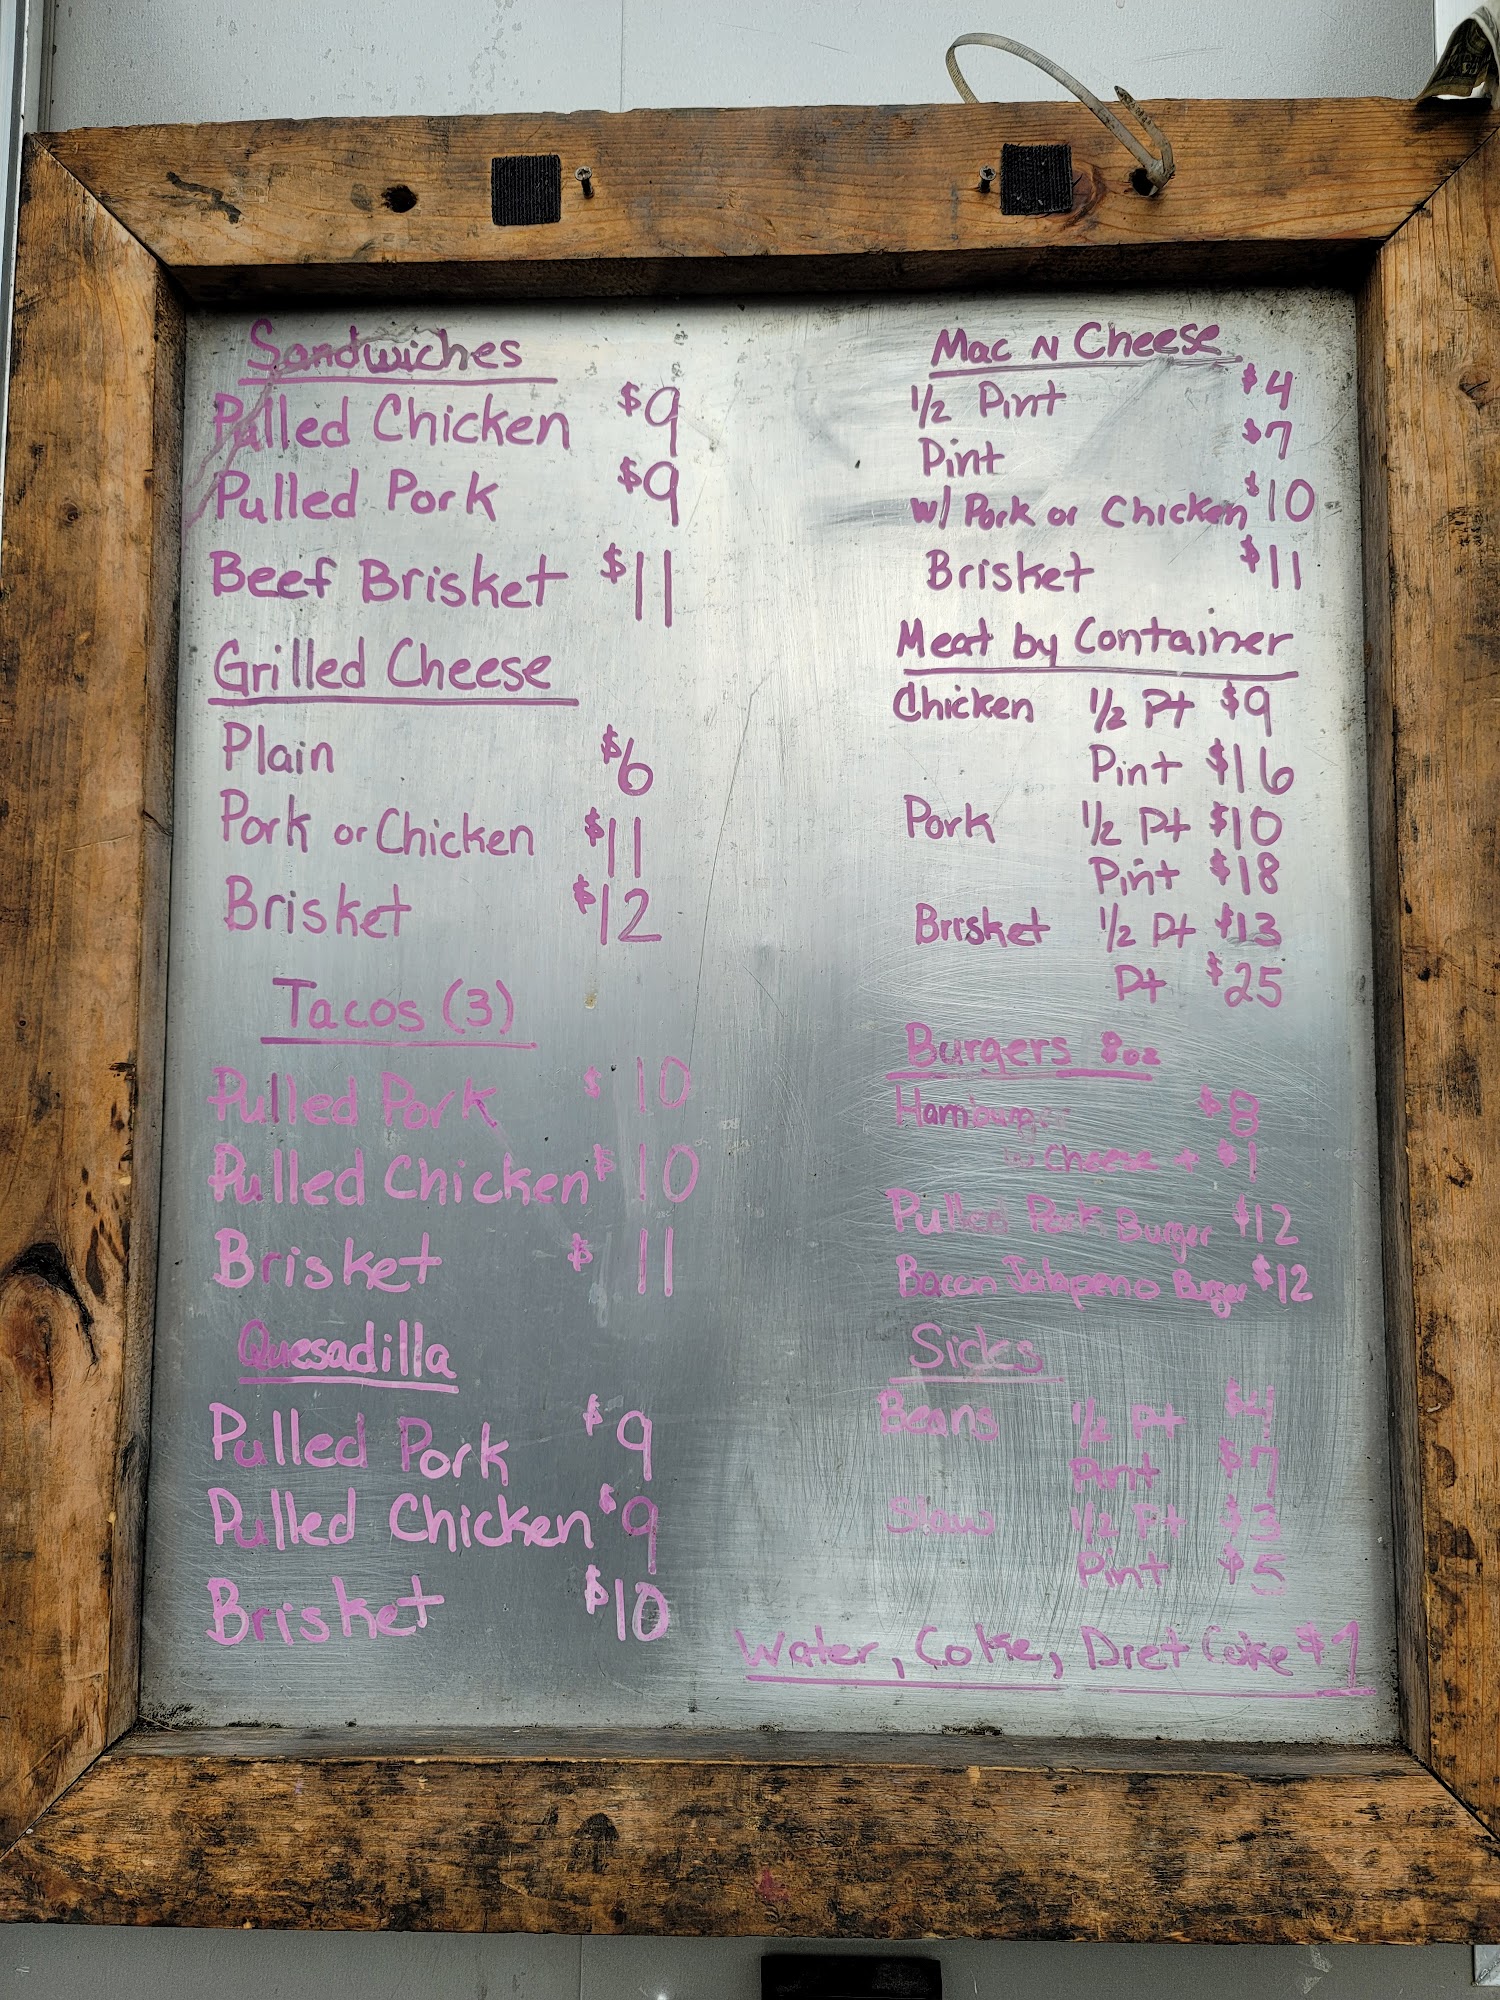 Sandwiches
Pulled Chicken $9
Pulled Pork $9
Beef Brisket $11
Grilled Cheese
Plain $6
Pork or Chicken $11
Brisket $12
Tacos (3)
Pulled Pork $10
Pulled Chicken $10
Brisket $11
Quesadilla
Pulled Pork $9
Pulled Chicken $9
Brisket $10
Mac N Cheese
1/2 Pint $4
Pint $7
w/ Pork or Chicken $10
Brisket $11
Meat by Container
Chicken 1/2 Pt $9
Pint $16
Pork 1/2 Pt $10
Pint $18
Brisket 1/2 Pt $13
Pt $25
Burgers 8oz
Hamburger $8
w Cheese + $1
Pulled Pork Burger $12
Bacon Jalapeno Burger $12
Sides
Beans 1/2 Pt $4
Pint $7
Slaw 1/2 Pt $3
Pint $5
Water, Coke, Diet Coke $1